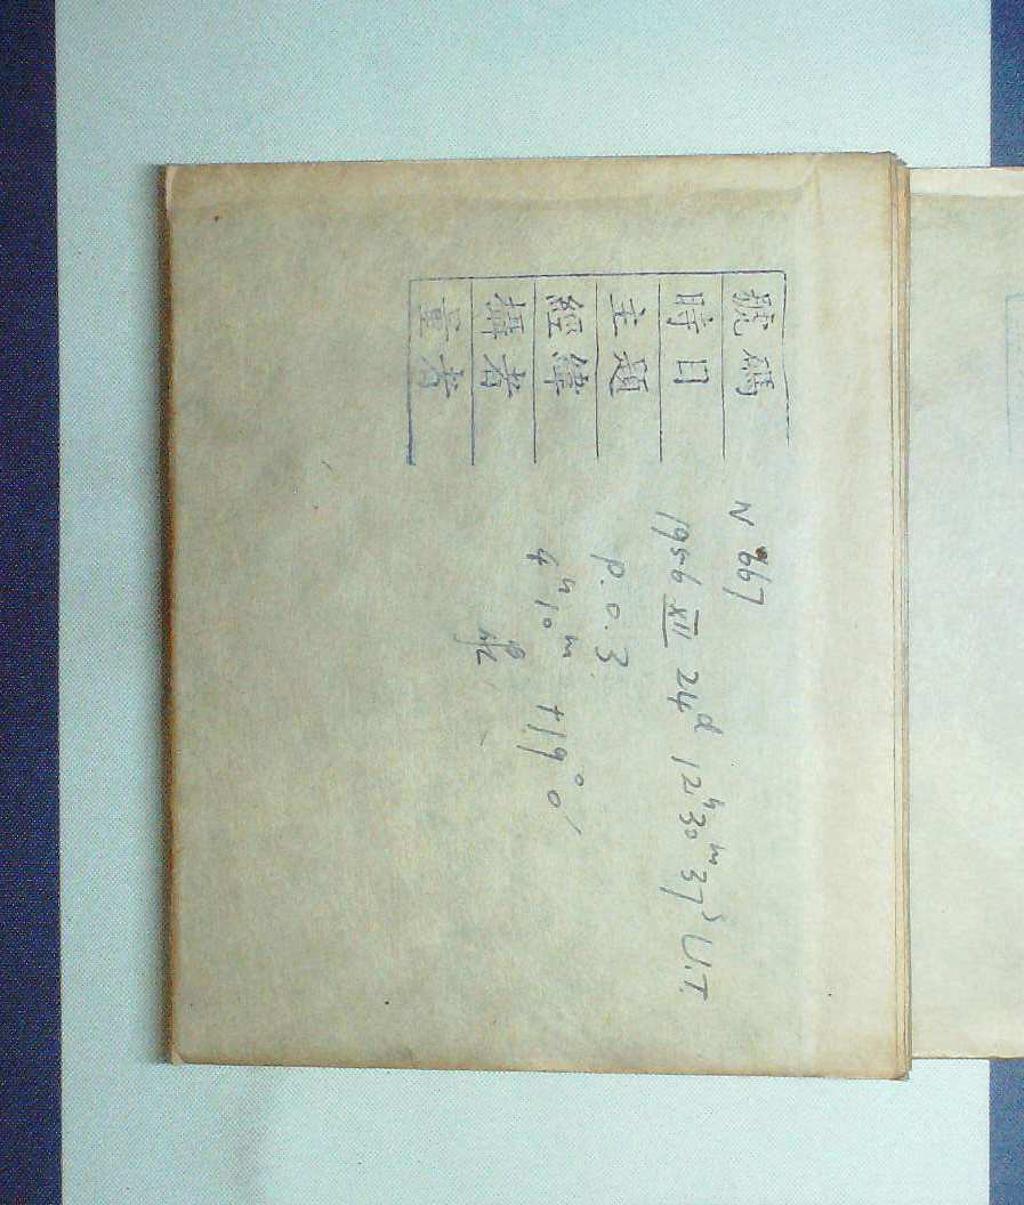 號碼 N 667
時日 1956 XII 24d 12h30m37s U.T.
主題 P.O.3
經緯 4h10m +19°0′
攝者
量者